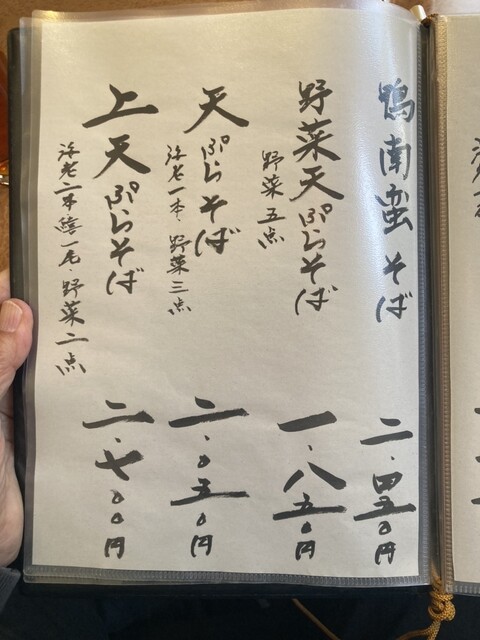 鴨南蛮そば 二.四五〇円
野菜天ぷらそば 一.八五〇円
野菜五点
天ぷらそば 二.〇五〇円
海老一本・野菜三点
上天ぷらそば 二.七〇〇円
海老二本 鱚一尾・野菜二点